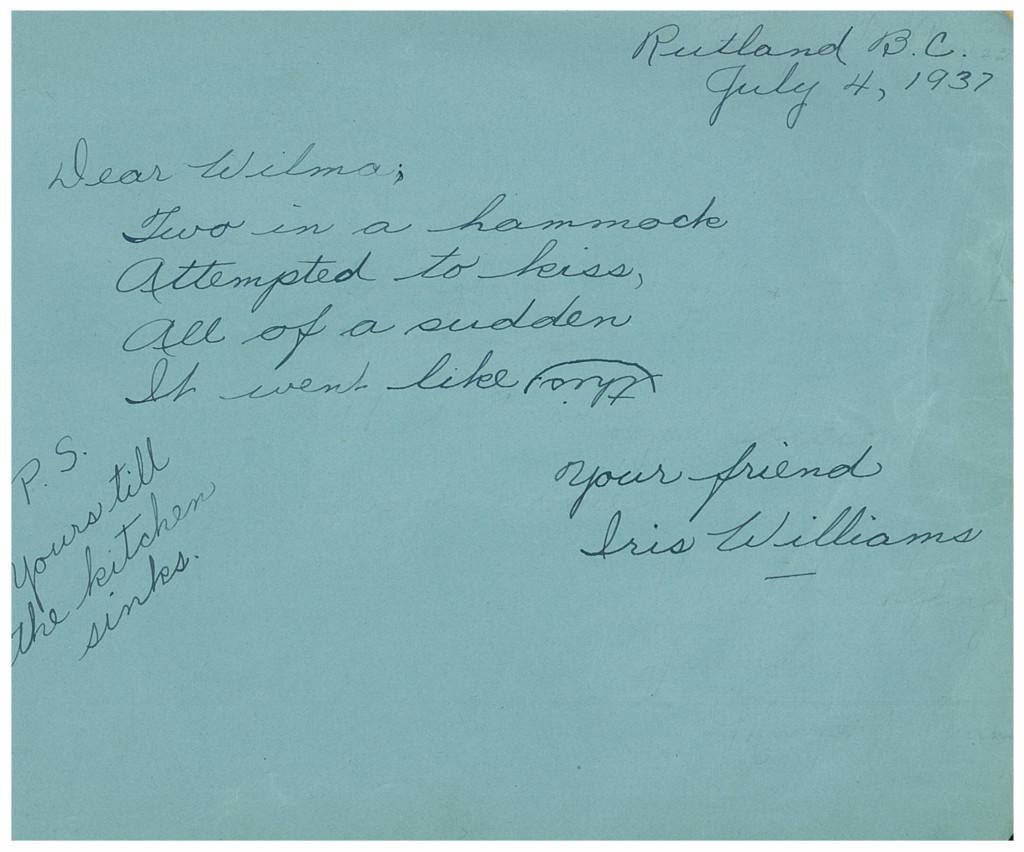 Rutland B.C.
July 4, 1937
Dear Wilma;
Two in a hammock
Attempted to kiss,
All of a sudden
It went like this
Your friend
Iris Williams
P. S.
Yours till
the kitchen
sinks.